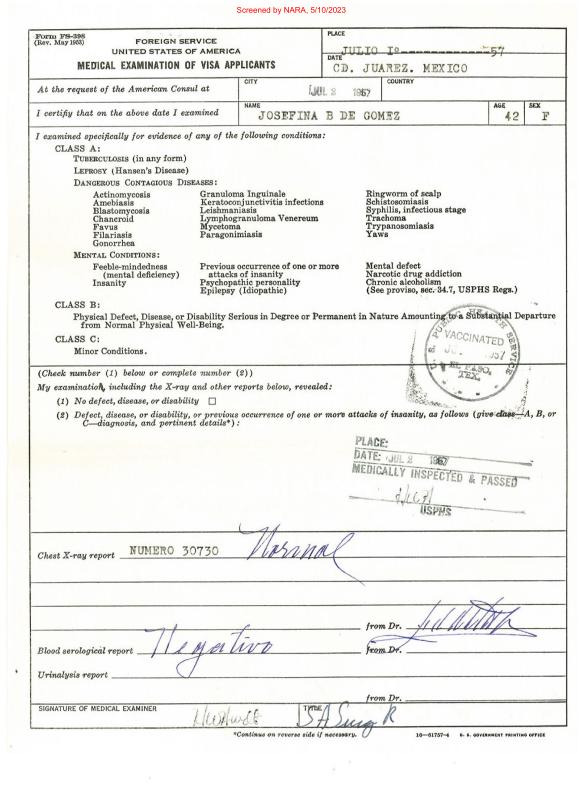 Screened by NARA, 5/10/2023
Form FS-398
(Rev. May 1953)
FOREIGN SERVICE
UNITED STATES OF AMERICA
MEDICAL EXAMINATION OF VISA APPLICANTS
PLACE
JULIO Io-------------57
DATE
CD. JUAREZ. MEXICO
At the request of the American Consul at
CITY
JUL 2 1957
COUNTRY
I certify that on the above date I examined
NAME
JOSEFINA B DE GOMEZ
AGE
42
SEX
F
I examined specifically for evidence of any of the following conditions:
CLASS A:
TUBERCULOSIS (in any form)
LEPROSY (Hansen's Disease)
DANGEROUS CONTAGIOUS DISEASES:
Actinomycosis
Amebiasis
Blastomycosis
Chancroid
Favus
Filariasis
Gonorrhea
Granuloma Inguinale
Keratoconjunctivitis infections
Leishmaniasis
Lymphogranuloma Venereum
Mycetoma
Paragonimiasis
Ringworm of scalp
Schistosomiasis
Syphilis, infectious stage
Trachoma
Trypanosomiasis
Yaws
MENTAL CONDITIONS:
Feeble-mindedness
(mental deficiency)
Insanity
Previous occurrence of one or more
attacks of insanity
Psychopathic personality
Epilepsy (Idiopathic)
Mental defect
Narcotic drug addiction
Chronic alcoholism
(See proviso, sec. 34.7, USPHS Regs.)
CLASS B:
Physical Defect, Disease, or Disability Serious in Degree or Permanent in Nature Amounting to a Substantial Departure
from Normal Physical Well-Being.
CLASS C:
Minor Conditions.
U. S. PUBLIC HEALTH SERVICE
VACCINATED
1957
EL PASO,
TEX.
(Check number (1) below or complete number (2))
My examination, including the X-ray and other reports below, revealed:
(1) No defect, disease, or disability
(2) Defect, disease, or disability, or previous occurrence of one or more attacks of insanity, as follows (give class—A, B, or
C—diagnosis, and pertinent details*):
PLACE:
DATE: JUL 2 1957
MEDICALLY INSPECTED & PASSED
USPHS
Chest X-ray report NUMERO 30730 Normal
from Dr.
Blood serological report Negativo
from Dr.
Urinalysis report
from Dr.
SIGNATURE OF MEDICAL EXAMINER
TITLE
*Continue on reverse side if necessary.
16—61757-4 U. S. GOVERNMENT PRINTING OFFICE